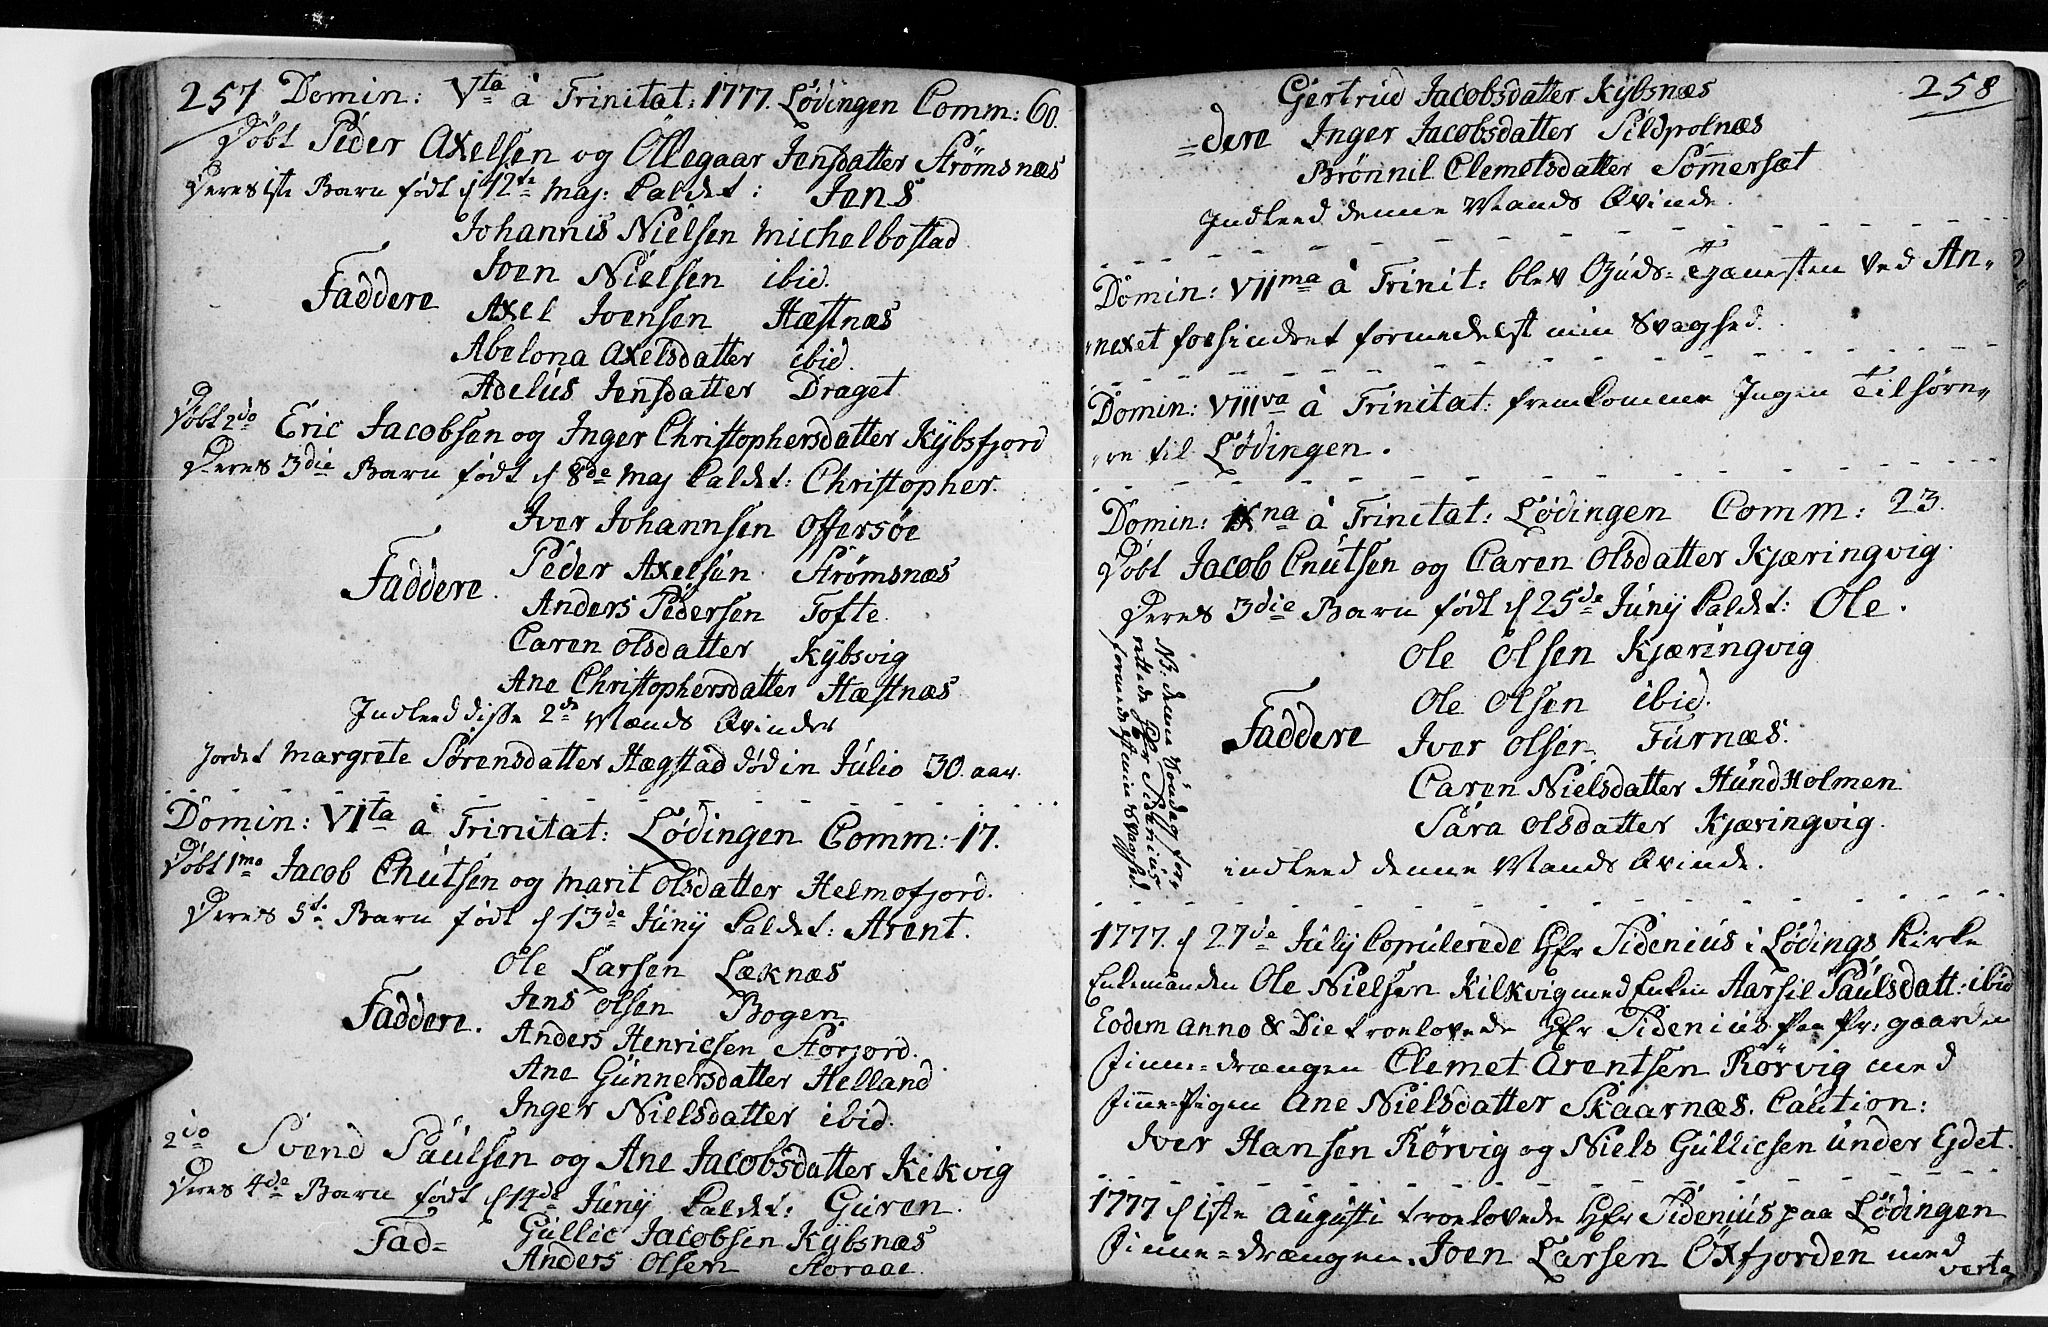 257 Domin: Vta à Trinitat: 1777. Lödingen Comm: 60.
Döbt Peder Axelsen og Ollegaar Jensdatter Strömsnæs
Deres 1ste Barn födt d 12te Maj: kaldet: Jens
Johannis Nielsen Michelbostad
Joen Nielsen ibid.
Faddere Axel Joensen Hæstnæs
Abelona Axelsdatter ibid.
Adelus Jensdatter Draget
Döbt 2do Eric Jacobsen og Inger Christophersdatter Kÿbsfjord
Deres 3die Barn födt d 8de Maj kaldet: Christopher.
Iver Johannsen Offersöe
Faddere. Peder Axelsen Strömsnæs
Anders Pedersen Tofte.
Caren Olsdatter Kÿbsvig
Ane Christophersdatter Hæstnæs
Indleed disse 2de Mænds Qvinder
Jordet Margrete Sörensdatter Hægstad död in Julio 30 aar.
Domin: VIta à Trinitat: Lödingen Comm: 17.
Döbt 1mo Jacob Cnutsen og Marit Olsdatter Helmofjord.
Deres 5te Barn födt d 13de Junÿ kaldet: Arent.
Ole Larsen Læknæs
Jens Olsen Bogen
Faddere. Anders Henricsen Storjord.
Ane Gunnersdatter Helland
Inger Nielsdatter ibid.
2do Svend Paulsen og Ane Jacobsdatter Kilkvig
Deres 4de Barn födt d 14de Junÿ kaldet: Guren.
Fad= Gullic Jacobsen Kÿbsnæs
Anders Olsen Storaae.
258
Gertrud Jacobsdatter Kÿbsnæs
=dere Inger Jacobsdatter Sildpolnæs
Brönnil Clemetsdatter Somersæt
Indleed denne Mands Qvinde.
Domin: VIIma à Trinit: blev Guds=Tjænesten ved An-
nexet forhindret formedelst min Svaghed.
Domin: VIIIva à Trinitat: fremkomme Ingen Tilhöre-
re til Lödingen.
Domin: IXna à Trinitat: Lödingen Comm: 23.
Döbt Jacob Cnutsen og Caren Olsdatter Kjæringvig.
Deres 3die Barn födt d 25de Junÿ kaldet: Ole.
NB: denne Söndag for-
rettede Hr Sidenius
formedelst min Svaghed.
Ole Olsen Kjæringvig
Ole Olsen ibid.
Faddere Iver Olsen Furnæs.
Caren Nielsdatter Hundholmen
Sara Olsdatter Kjæringvig.
indleed denne Mands Qvinde.
1777. d 27de Julÿ Copulerede Hr Sidenius i Lödings Kirke
Enkemanden Ole Nielsen Kilkvig med Enken Aarsil Paulsdatt: ibid
Eodem anno & Die troelovede Hr Sidenius paa Pr: gaarden
Finne=drængen Clemet Arentsen Rörvig med
Finne=Pigen Ane Nielsdatter Skaarnæs. Caution:
Iver Hansen Rörvig og Niels Gullicsen under Ejdet.
1777 d 1ste Augusti troelovede Hr Sidenius paa Lödingen
Finne=drængen. Joen Larsen Oxfjorden med
verte